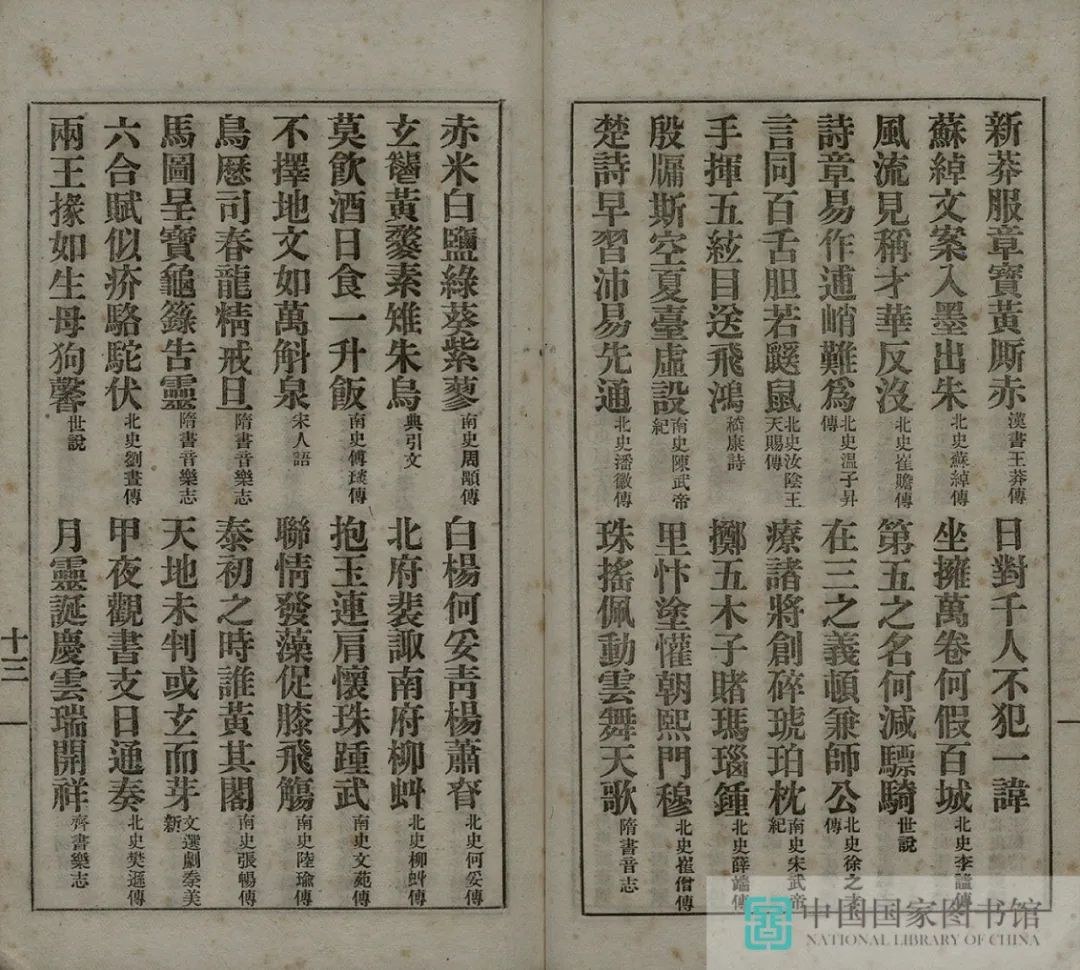 新莽服章寶黃厮赤 漢書王莽傳 日對千人不犯一諱
蘇綽文案入墨出朱 北史蘇綽傳 坐擁萬卷何假百城 北史李謐傳
風流見稱才華反沒 北史崔贍傳 第五之名何減驃騎 世說
詩章易作逋峭難爲 北史温子昇傳 在三之義頓兼師公 北史徐之才傳
言同百舌胆若鼷鼠 北史汝陰王天賜傳 療諸將創碎琥珀枕 南史宋武帝紀
手揮五絃目送飛鴻 嵇康詩 擲五木子賭瑪瑙鍾 北史薛端傳
殷牖斯空夏臺虛設 南史陳武帝紀 里忭塗懽朝熙門穆 北史崔僧傳
楚詩早習沛易先通 北史潘徽傳 珠搖佩動雲舞天歌 隋書音志
赤米白鹽綠葵紫蓼 南史周顒傳 白楊何妥靑楊蕭眘 北史何妥傳
玄黃素雉朱烏 典引文 北府裴諏南府柳虯 北史柳虯傳
莫飮酒日食一升飯 南史傅琰傳 抱玉連肩懷珠踵武 南史文苑傳
不擇地文如萬斛泉 宋人語 聯情發藻促膝飛觴 南史陸瑜傳
鳥歷司春龍精戒旦 隋書音樂志 泰初之時誰黃其閣 南史張暢傳
馬圖呈寶龜籙告靈 隋書音樂志 天地未判或玄而芽 文選劇秦美新
六合賦似疥駱駝伏 北史劉晝傳 甲夜觀書支日通奏 北史樊遜傳
兩王掾如生母狗馨 世說 月靈誕慶雲瑞開祥 齊書樂志
十三
中国国家图书馆
NATIONAL LIBRARY OF CHINA